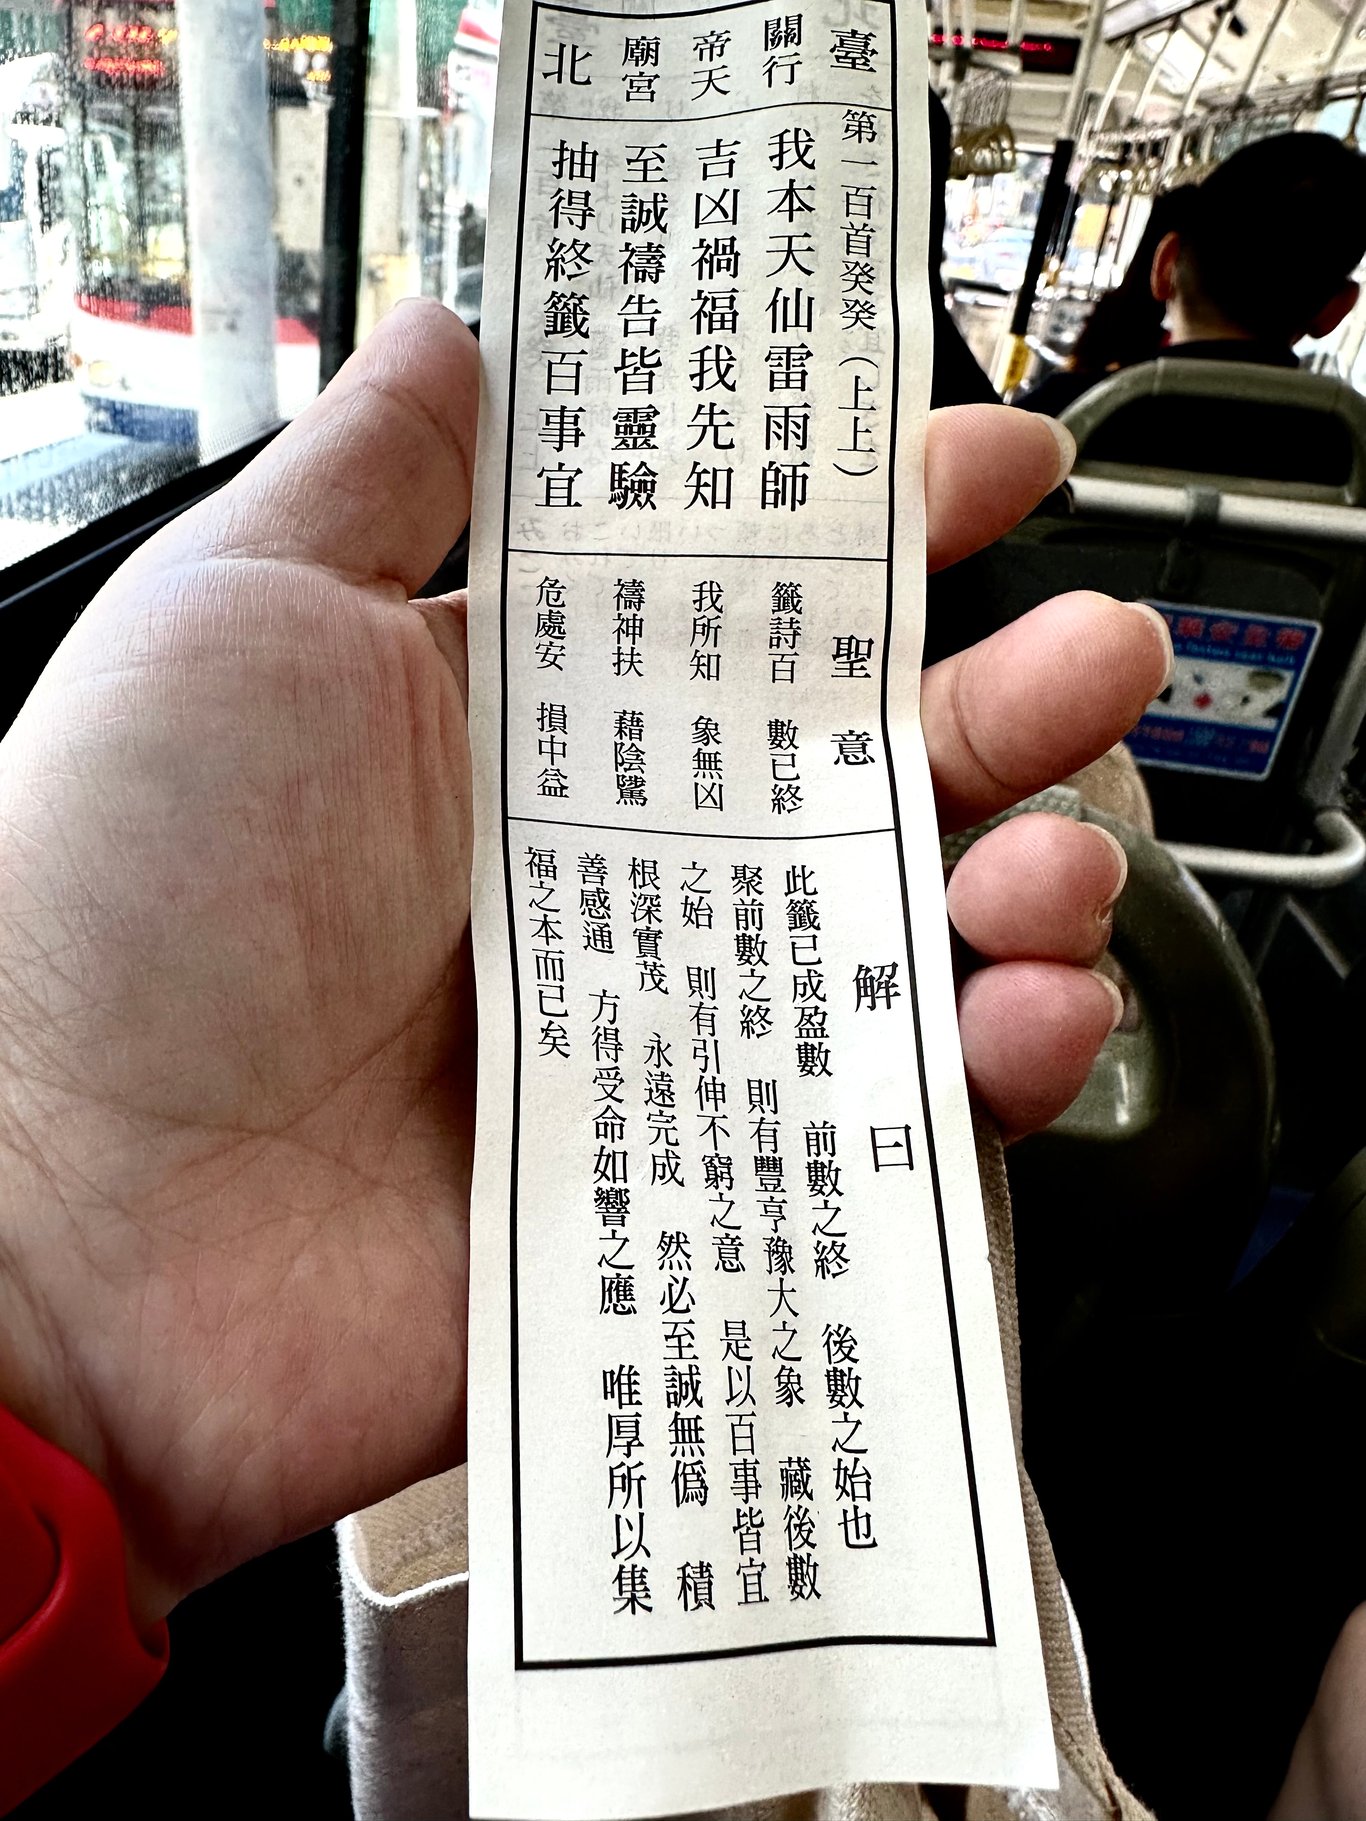 臺北
關帝廟
行天宮
第一百首癸癸（上上）
我本天仙雷雨師
吉凶禍福我先知
至誠禱告皆靈驗
抽得終籤百事宜
聖意
籤詩百　數已終
我所知　象無凶
禱神扶　藉陰騭
危處安　損中益
解曰
此籤已成盈數　前數之終　後數之始也
聚前數之終　則有豐亨豫大之象　藏後數
之始　則有引伸不窮之意　是以百事皆宜
根深實茂　永遠完成　然必至誠無僞　積
善感通　方得受命如響之應　唯厚所以集
福之本而已矣